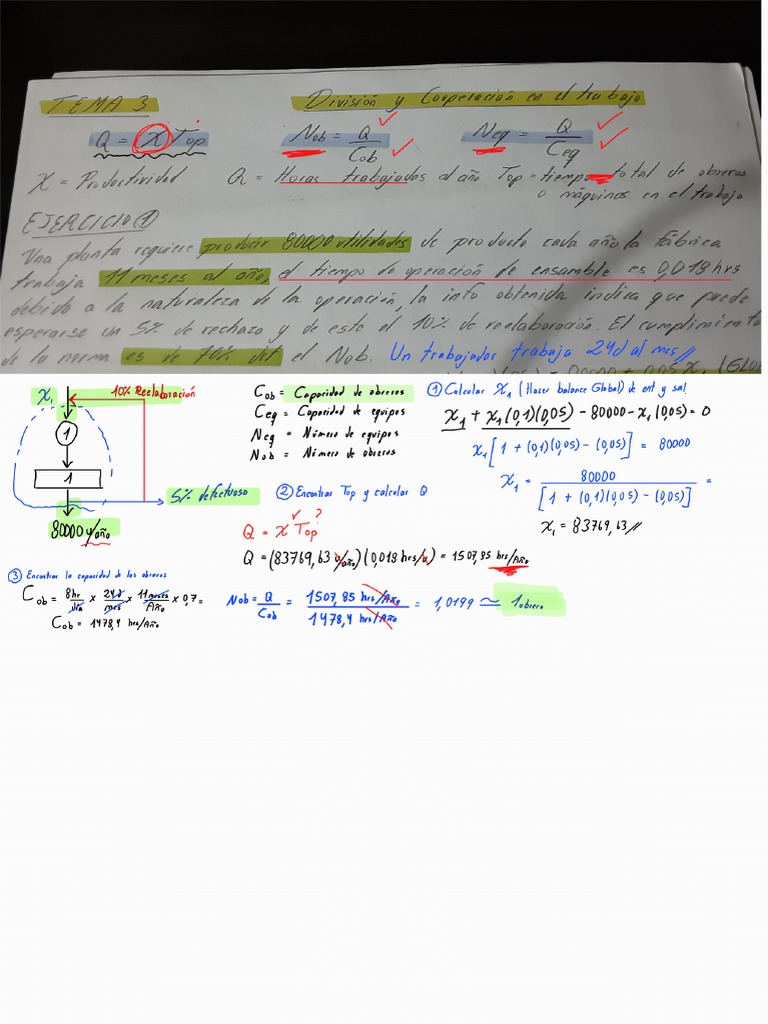 TEMA 3 División y Cooperación en el trabajo
Q = X Top Nob = Q/Cob Neq = Q/Ceq
X = Productividad Q = Horas trabajadas al año Top = tiempo total de obreros
o máquinas en el trabajo
EJERCICIO ①
Una planta requiere producir 80000 utilidades de producto cada año la fábrica
trabaja 11 meses al año, el tiempo de operación de ensamble es 0,018 hrs
debido a la naturaleza de la operación, la info obtenida indica que puede
esperarse un 5% de rechazo y de este el 10% de reelaboración. El cumplimiento
de la norma es de 70% del Nob. Un trabajador trabaja 24d al mes //
X₁ 10% Reelaboración
1
1
5% defectuoso
80000 u/año
Cob = Capacidad de obreros
Ceq = Capacidad de equipos
Neq = Número de equipos
Nob = Número de obreros
① Calcular X₁ (Hacer balance Global) de ent y sal
X₁ + X₁(0,1)(0,05) - 80000 - X₁(0,05) = 0
X₁[1 + (0,1)(0,05) - (0,05)] = 80000
X₁ = 80000/[1 + (0,1)(0,05) - (0,05)] =
X₁ = 83769,63 //
② Encontrar Top y calcular Q
?
Q = X Top
Q = (83769,63 u/año)(0,018 hrs/u) = 1507,85 hrs/Año
③ Encontrar la capacidad de los obreros
Cob = 8hr/día x 24d/mes x 11meses/Año x 0,7 =
Cob = 1478,4 hrs/Año
Nob = Q/Cob = 1507,85 hrs/Año / 1478,4 hrs/Año = 1,0199 ≃ 1 obrero